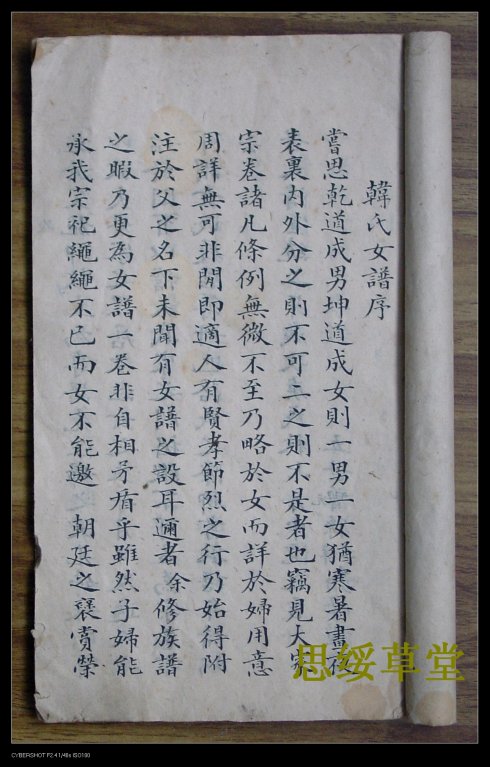 韓氏女譜序
嘗思乾道成男坤道成女則一男一女猶寒暑晝夜
表裏內外分之則不可二之則不是者也竊見大家
宗卷諸凡條例無微不至乃略於女而詳於婦用意
周詳無可非閒即適人有賢孝節烈之行乃始得附
注於父之名下未聞有女譜之設耳邇者余修族譜
之暇乃更為女譜一卷非自相矛盾乎雖然子婦能
承我宗祀繩繩不已而女不能邀 朝廷之褒賞榮
思綏草堂
CYBERSHOT F2.4 1/48s ISO100